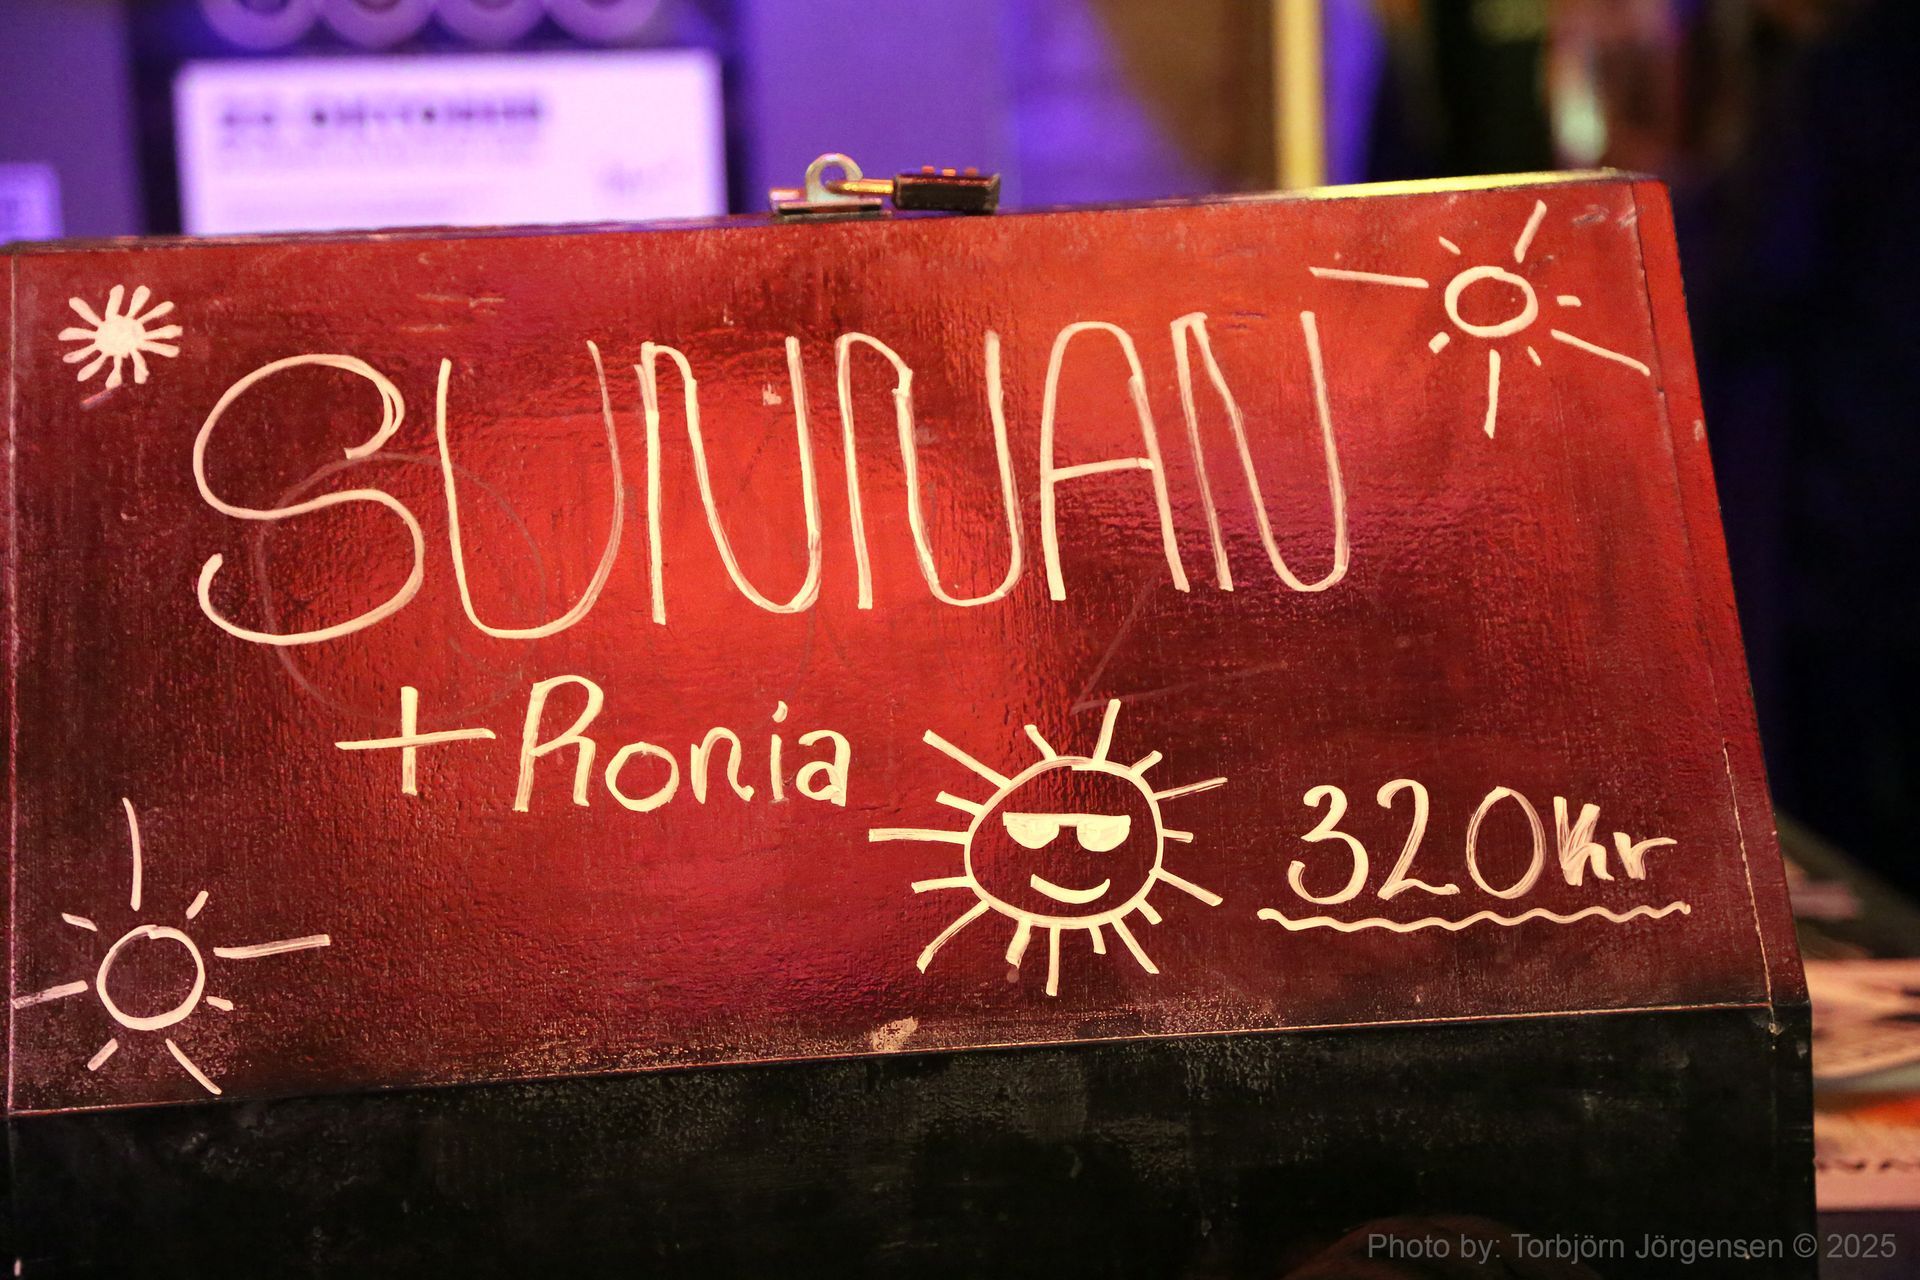 SUNNAN
+ Ronia
320kr
Photo by: Torbjörn Jörgensen © 2025